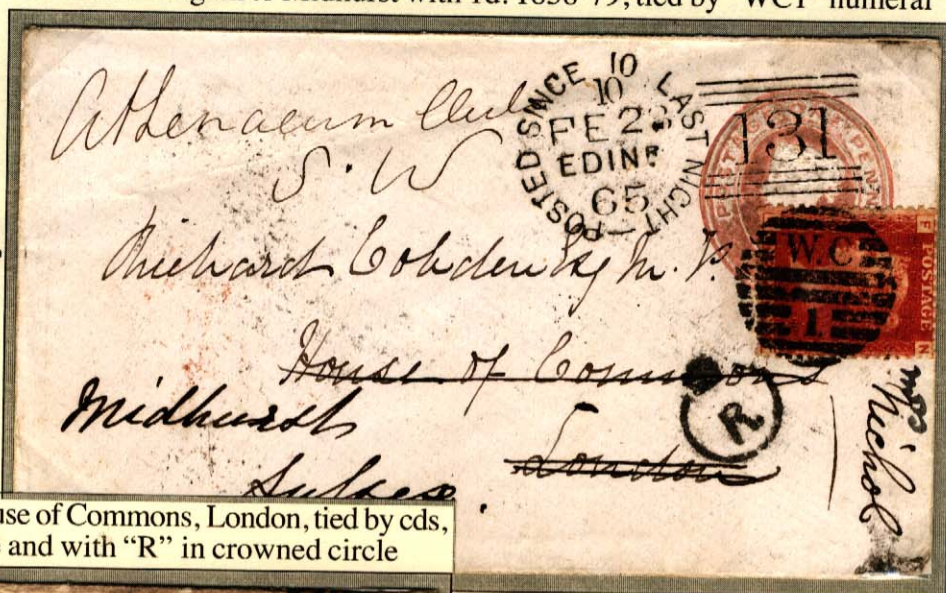 Midhurst with 1d. 1858-79, tied by "WC1" numeral
Athenaeum Club
S. W
POSTED SINCE 10 LAST NIGHT
10
FE 23
EDINR
65
131
POSTAGE
W.C
1
F POSTAGE N
Richard Cobden Esq M. P.
House of Commons
London
R
Midhurst
Sussex.
Mrs Nichol
use of Commons, London, tied by cds,
and with "R" in crowned circle